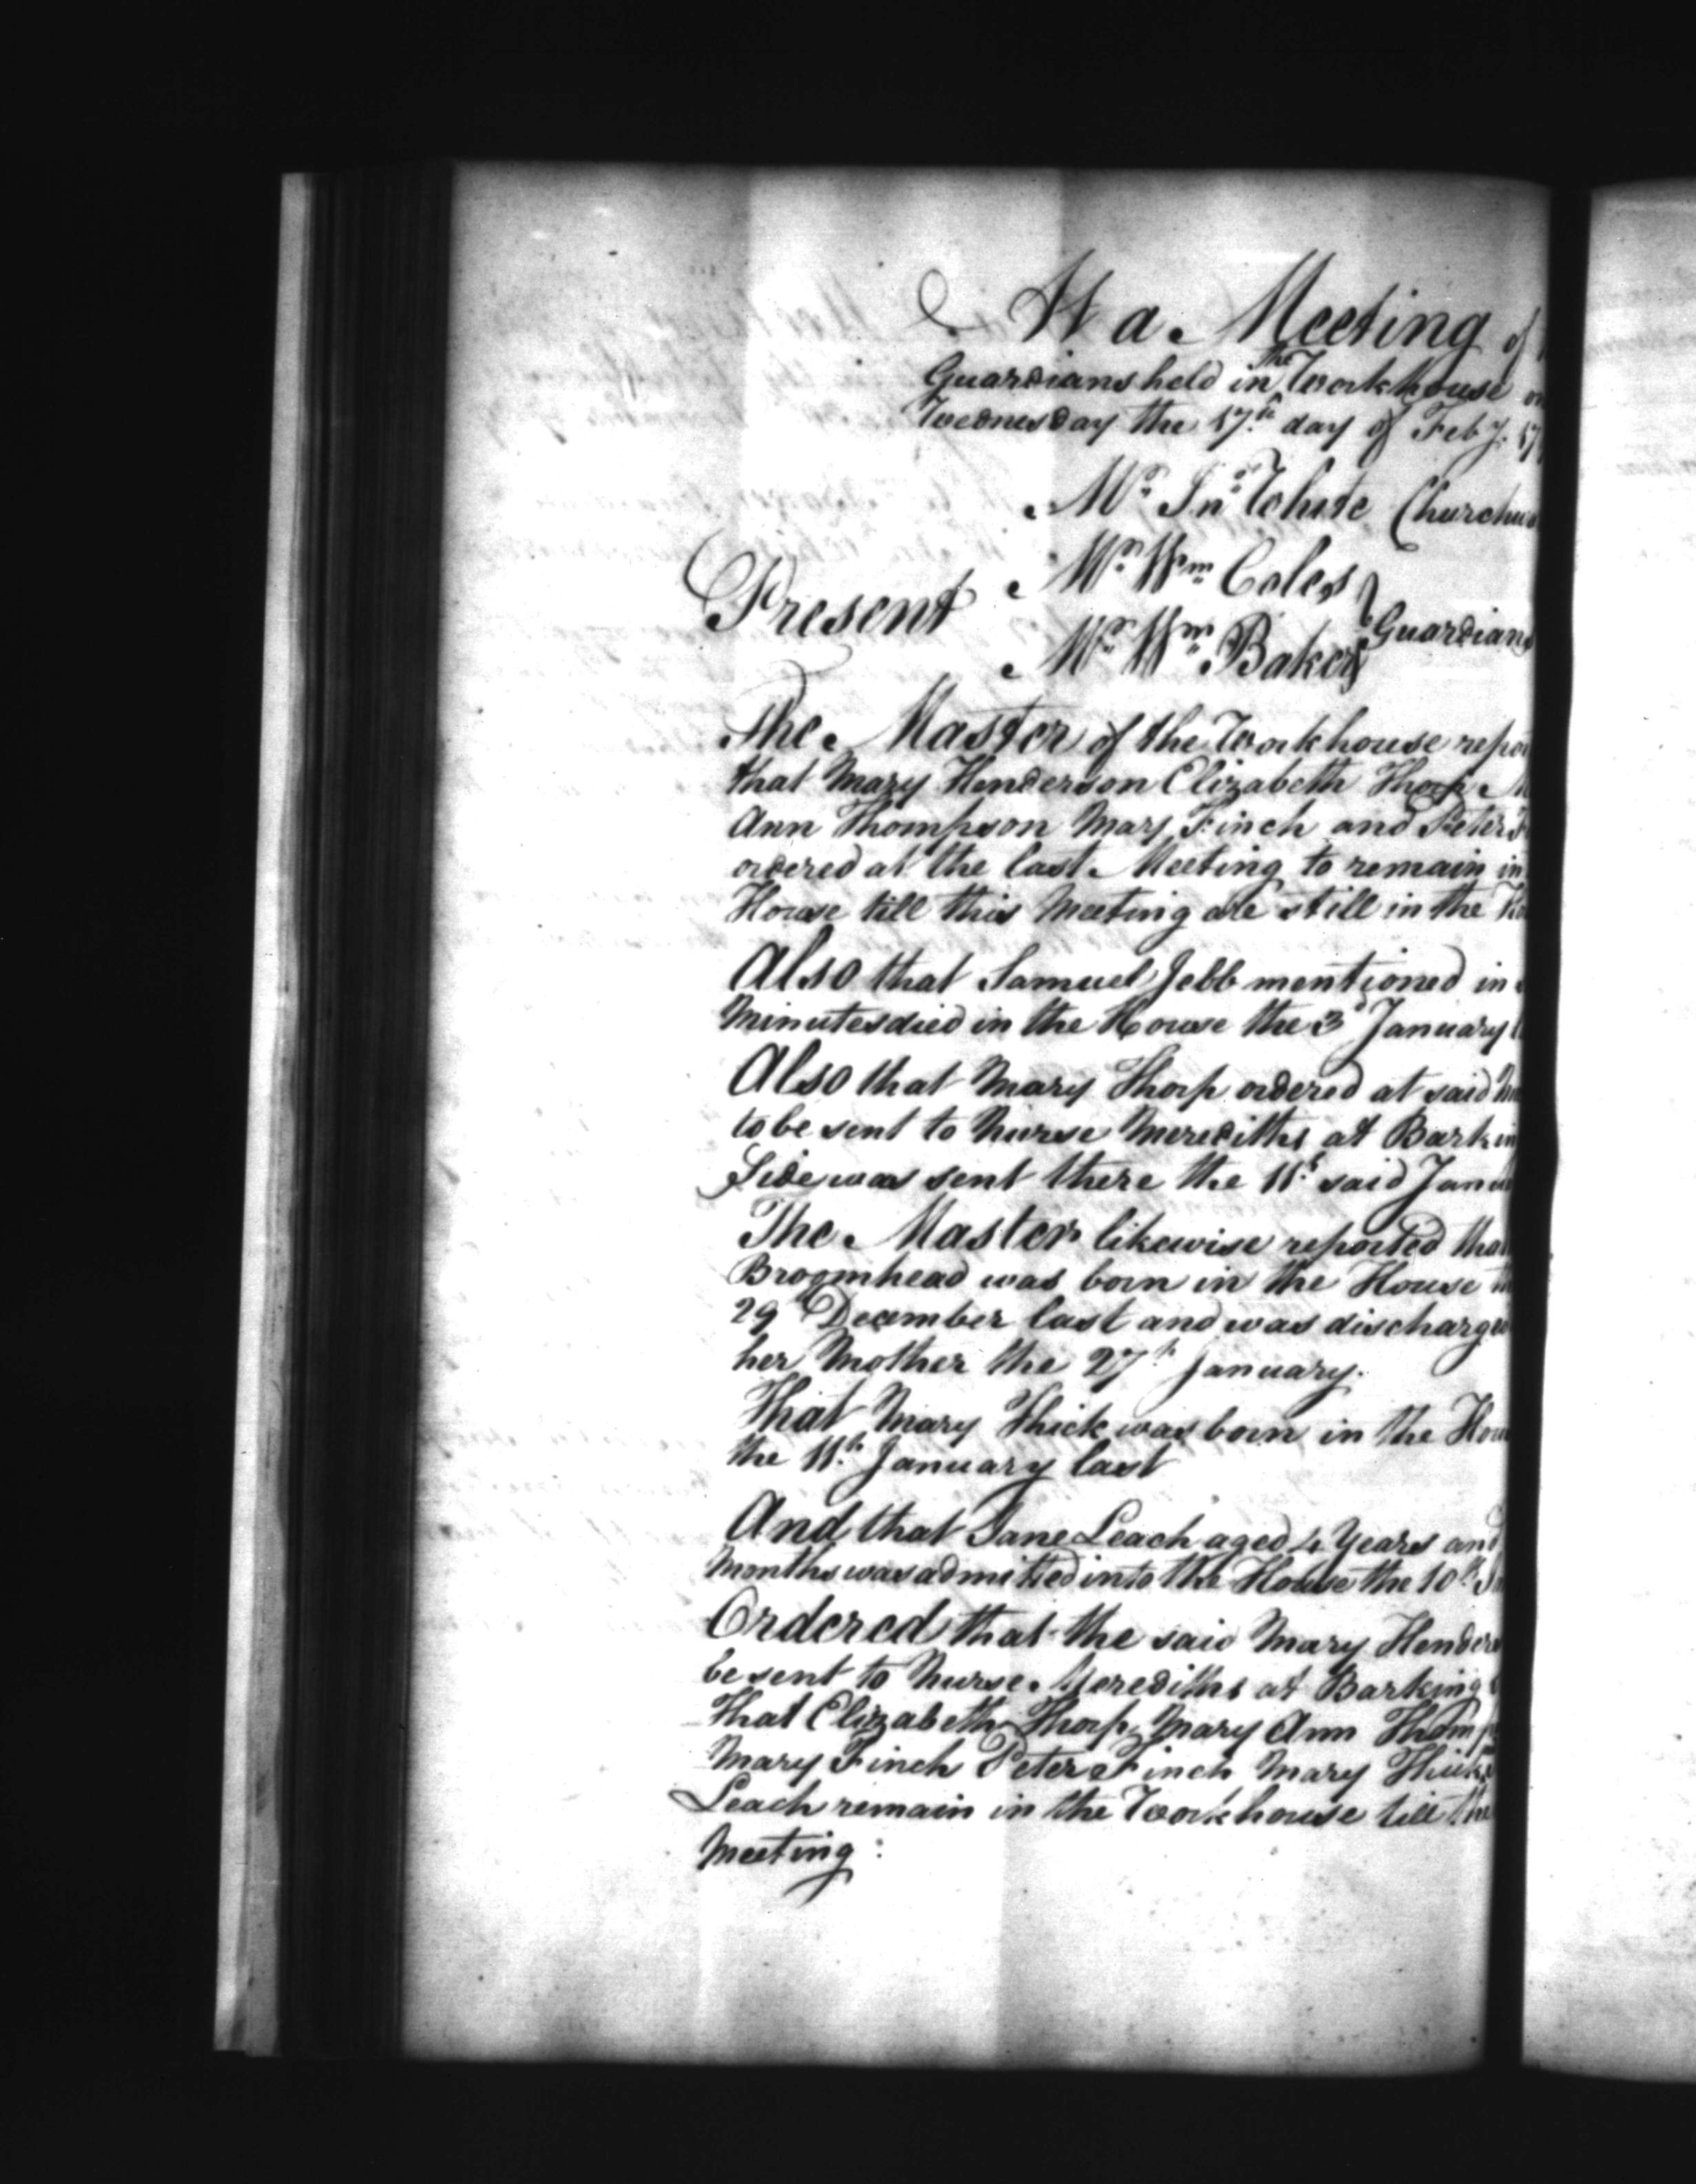 At a Meeting of
Guardians held in the Workhouse on
Wednesday the 17th day of Feby. 17
Mr. Jno. White Churchw
Present
Mr. Wm. Coles
Guardians
Mr. Wm. Baker
The Master of the Workhouse repor
that Mary Henderson Elizabeth Thorp M
Ann Thompson Mary Finch and Peter F
ordered at the last Meeting to remain in
House till this Meeting are still in the Ho
Also that Samuel Jebb mentioned in
Minutes died in the House the 3d January
Also that Mary Thorp ordered at said M
to be sent to Nurse Merediths at Barkin
Side was sent there the 11th said Janu
The Master likewise reported that
Broomhead was born in the House th
29th December last and was discharged
her Mother the 27th January.
That Mary Thick was born in the Hou
the 11th January last
And that Jane Leach aged 4 Years and
Months was admitted into the House the 10th
Ordered that the said Mary Henders
be sent to Nurse Merediths at Barking
That Elizabeth Thorp Mary Ann Thomp
Mary Finch Peter Finch Mary Thick
Leach remain in the Workhouse till the
Meeting: